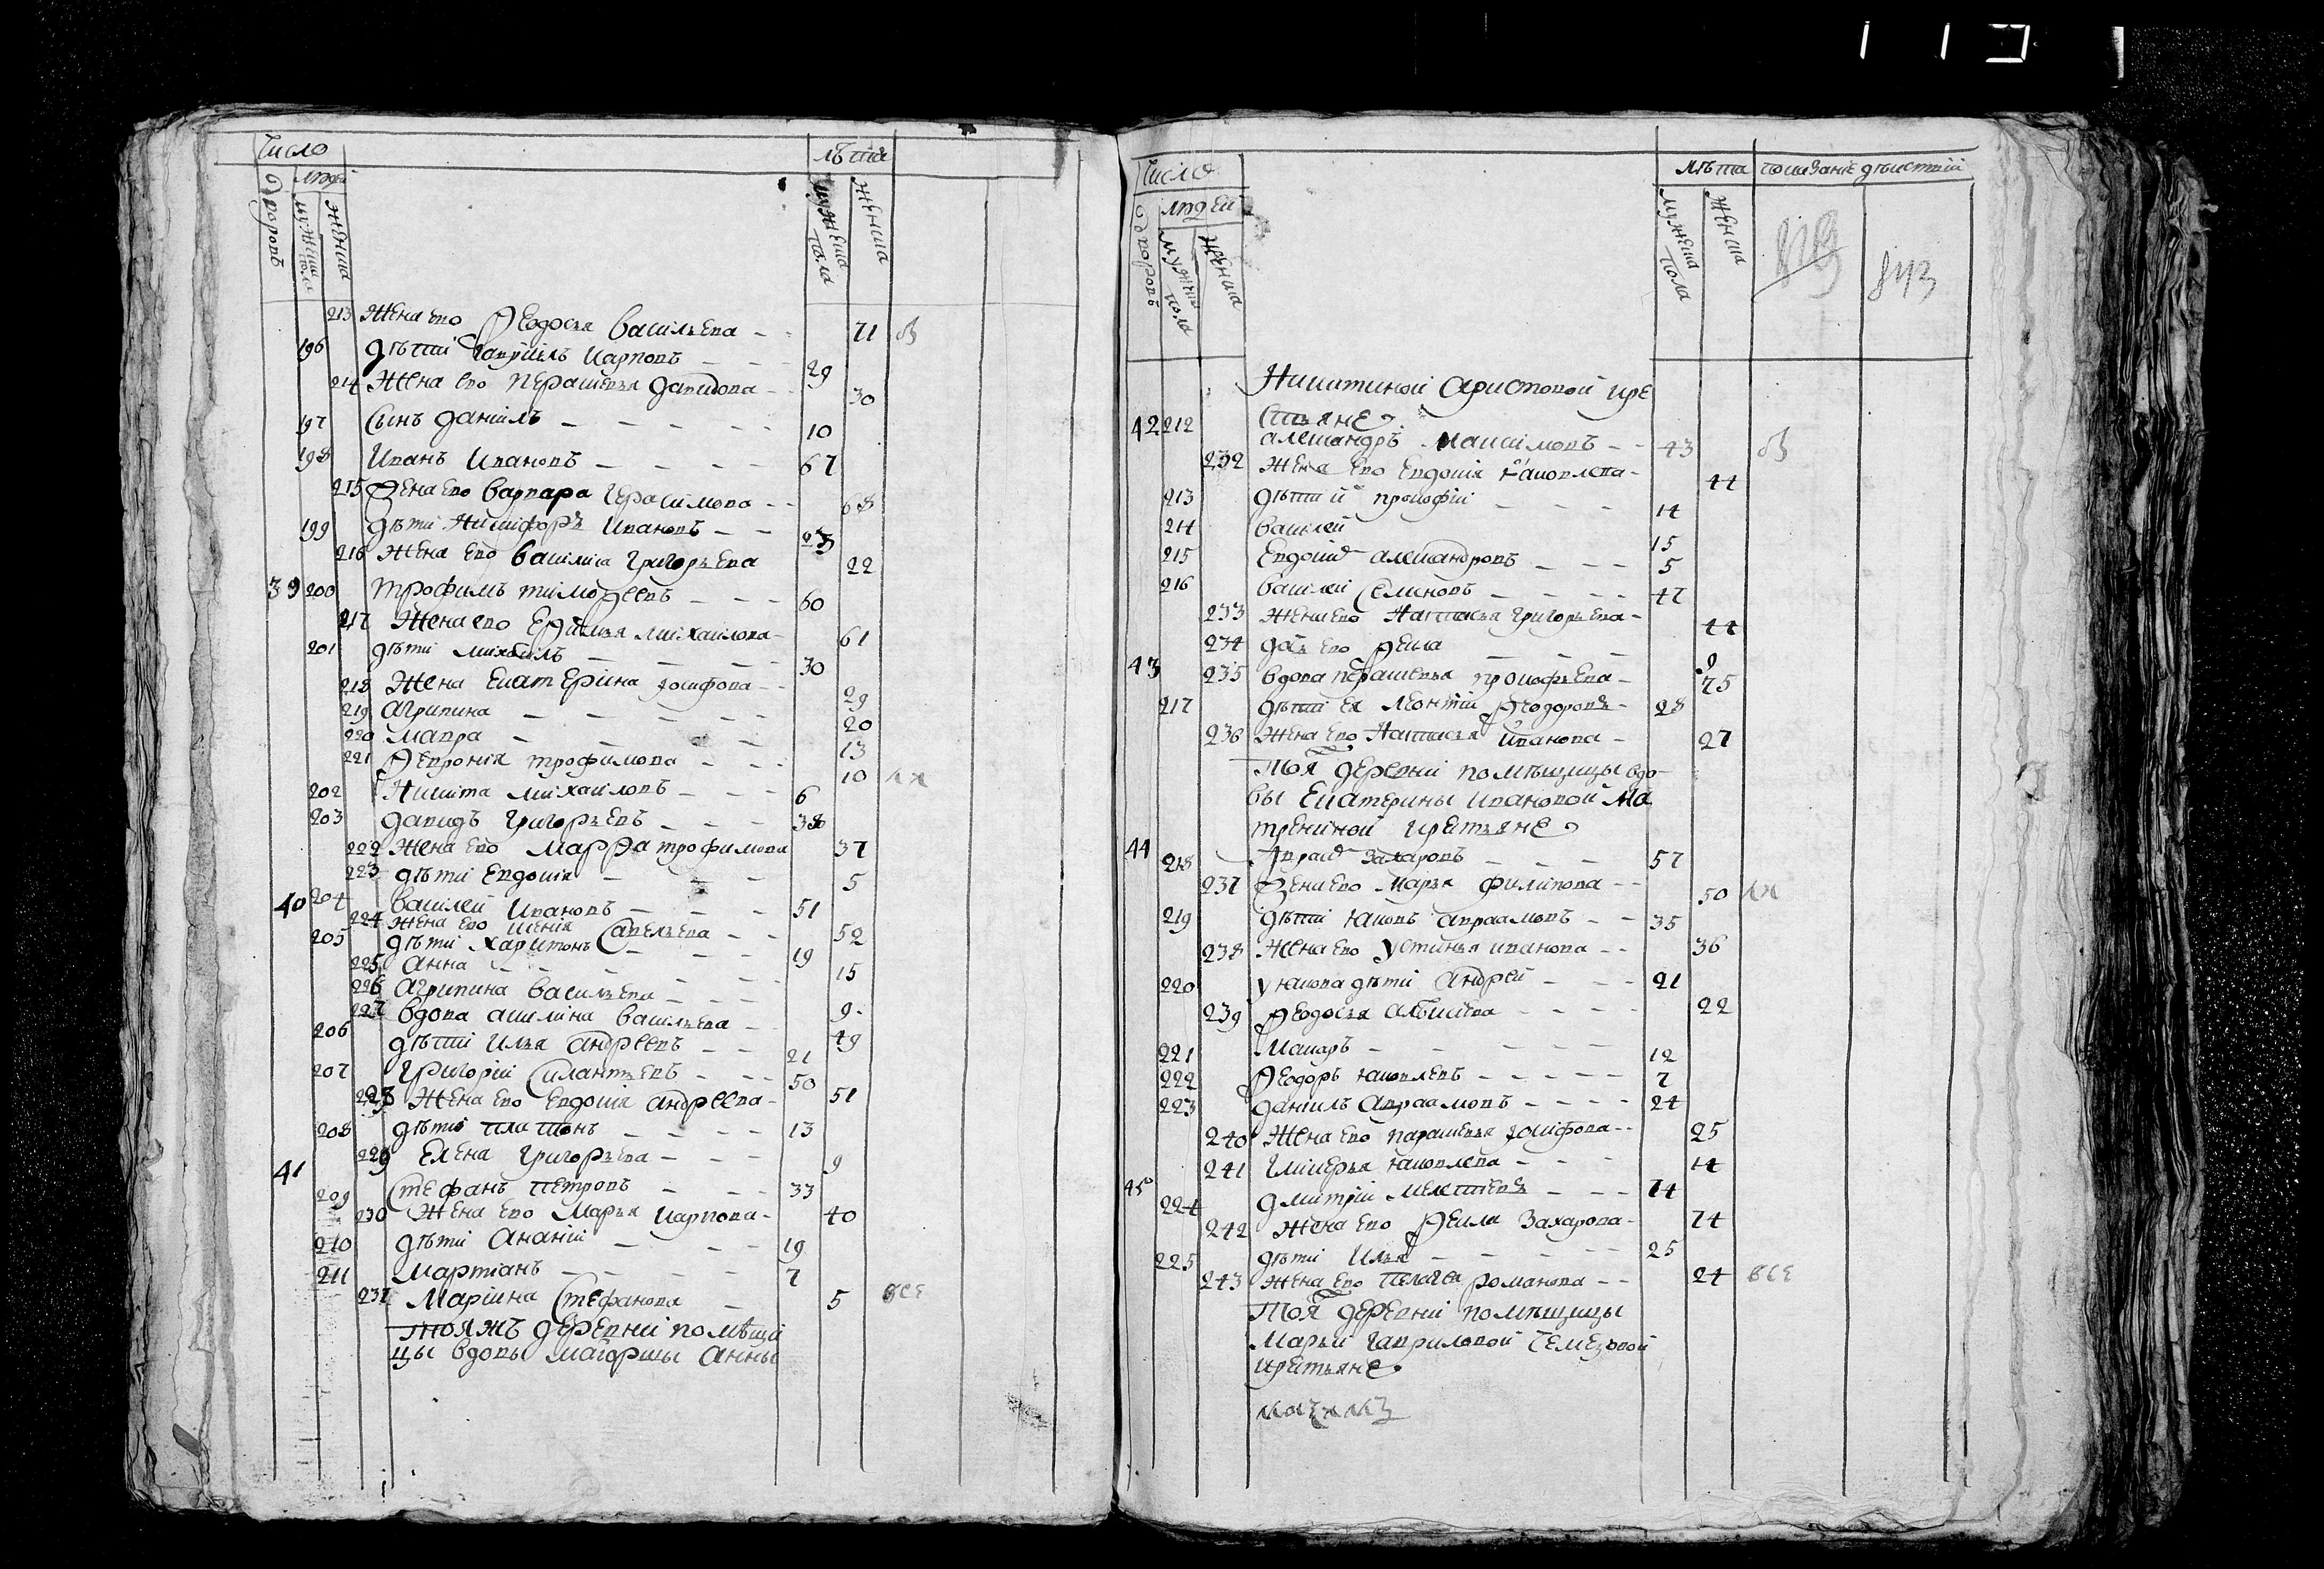 число
лѣта
людей
дворовъ
мужеска пола
женска
мужеска пола
женска
213 Жена ево Ѳедосья Васильева - - 71
196 дѣти Гавриилъ Карповъ - - - 29
214 Жена ево Перасковья Давидова - - 30
197 Сынъ Даніилъ - - - - - 10
198 Иванъ Ивановъ - - - - 67
215 Жена ево Варвара Герасимова - - 68
199 дѣти Никифоръ Ивановъ - -
216 Жена ево Василиса Григорьева 22
39 200 Трофимъ Тимоѳеевъ - - - 60
217 Жена ево Михаилова - 61
201 дѣти Михаилъ - - - - 30
218 Жена Екатерина Іосифова - - 29
219 Агрипина - - - - - 20
220 Мавра - - - - 13
221 Ѳеврония Трофимова - - - 10
202 Никита Михаиловъ - - - 6
203 Давидъ Григорьевъ - - - 38
222 Жена ево Марѳа Трофимова 37
223 дѣти Евдокия - - - 5
40 204 Василей Ивановъ - - - 51
224 Жена ево Савельева - - 52
205 дѣти Харитонъ - - - 19
225 Анна - - - - - 15
226 Агрипина Васильева - - - 9
227 Вдова Акилина Васильева - - 49
206 дѣти Илья Андреевъ - - 21
207 Григорій Силантьевъ - - - 50
228 Жена ево Евдокия Андреева - 51
208 дѣти Платонъ - - - - 13
229 Елена Григорьева - - - 9
41 209 Стефанъ Петровъ - - - 33
230 Жена ево Марья Карпова - 40
210 дѣти Ананій - - - 19
211 Мартіанъ - - - - - 7
231 Марина Стефанова - 5 все
Тояжъ деревни помѣщи
цы вдовы маіорши Анны
число
лѣта
показаніе дѣйствій
людей
дворовъ
мужеска пола
женска
мужеска пола
женска
843
Никитиной Аристовой кре
стьяне
42 212 Александръ Максимовъ - - 43
232 Жена ево Евдокия Іаковлева - 44
213 дѣти Прокофій - - - 14
214 Василей 15
215 Евдоким Александровъ - - - 5
216 Василей Семеновъ - - - - 47
233 Жена ево Настасья Григорьева - 44
234 дочь ево Ѳекла - - - 9
43 235 Вдова Перасковья Прокофьева - 75
217 дѣти ея Леонтій Ѳеодоровъ - 28
236 Жена ево Настасья Иванова - 27
Тоя деревни помѣщицы вдо
вы Екатерины Ивановой Ма
трениной крестьяне
44 218 Авраам Захаровъ - - - 57
237 Жена ево Марья Филипова - - 50
219 дѣти Іаковъ Авраамовъ - - 35
238 Жена ево Устинья Иванова - - 36
220 у Іакова дѣти Андрей - - - 21
239 Ѳедосья - - - - 22
221 Макаръ - - - - - - 12
222 Ѳеодоръ Іаковлевъ - - - - - 7
223 Даніилъ Авраамовъ - - - - 24
240 Жена ево Парасковья Іосифова - - 25
241 Гликерья Іаковлева - - - 14
45 224 Дмитрій - - - 74
242 Жена ево Ѳекла Захарова - 74
225 дѣти Илья - - - - - 25
243 Жена ево Пелагея Романова - - 24 все
Тоя деревни помѣщицы
Марьи Гавриловой
крестьяне